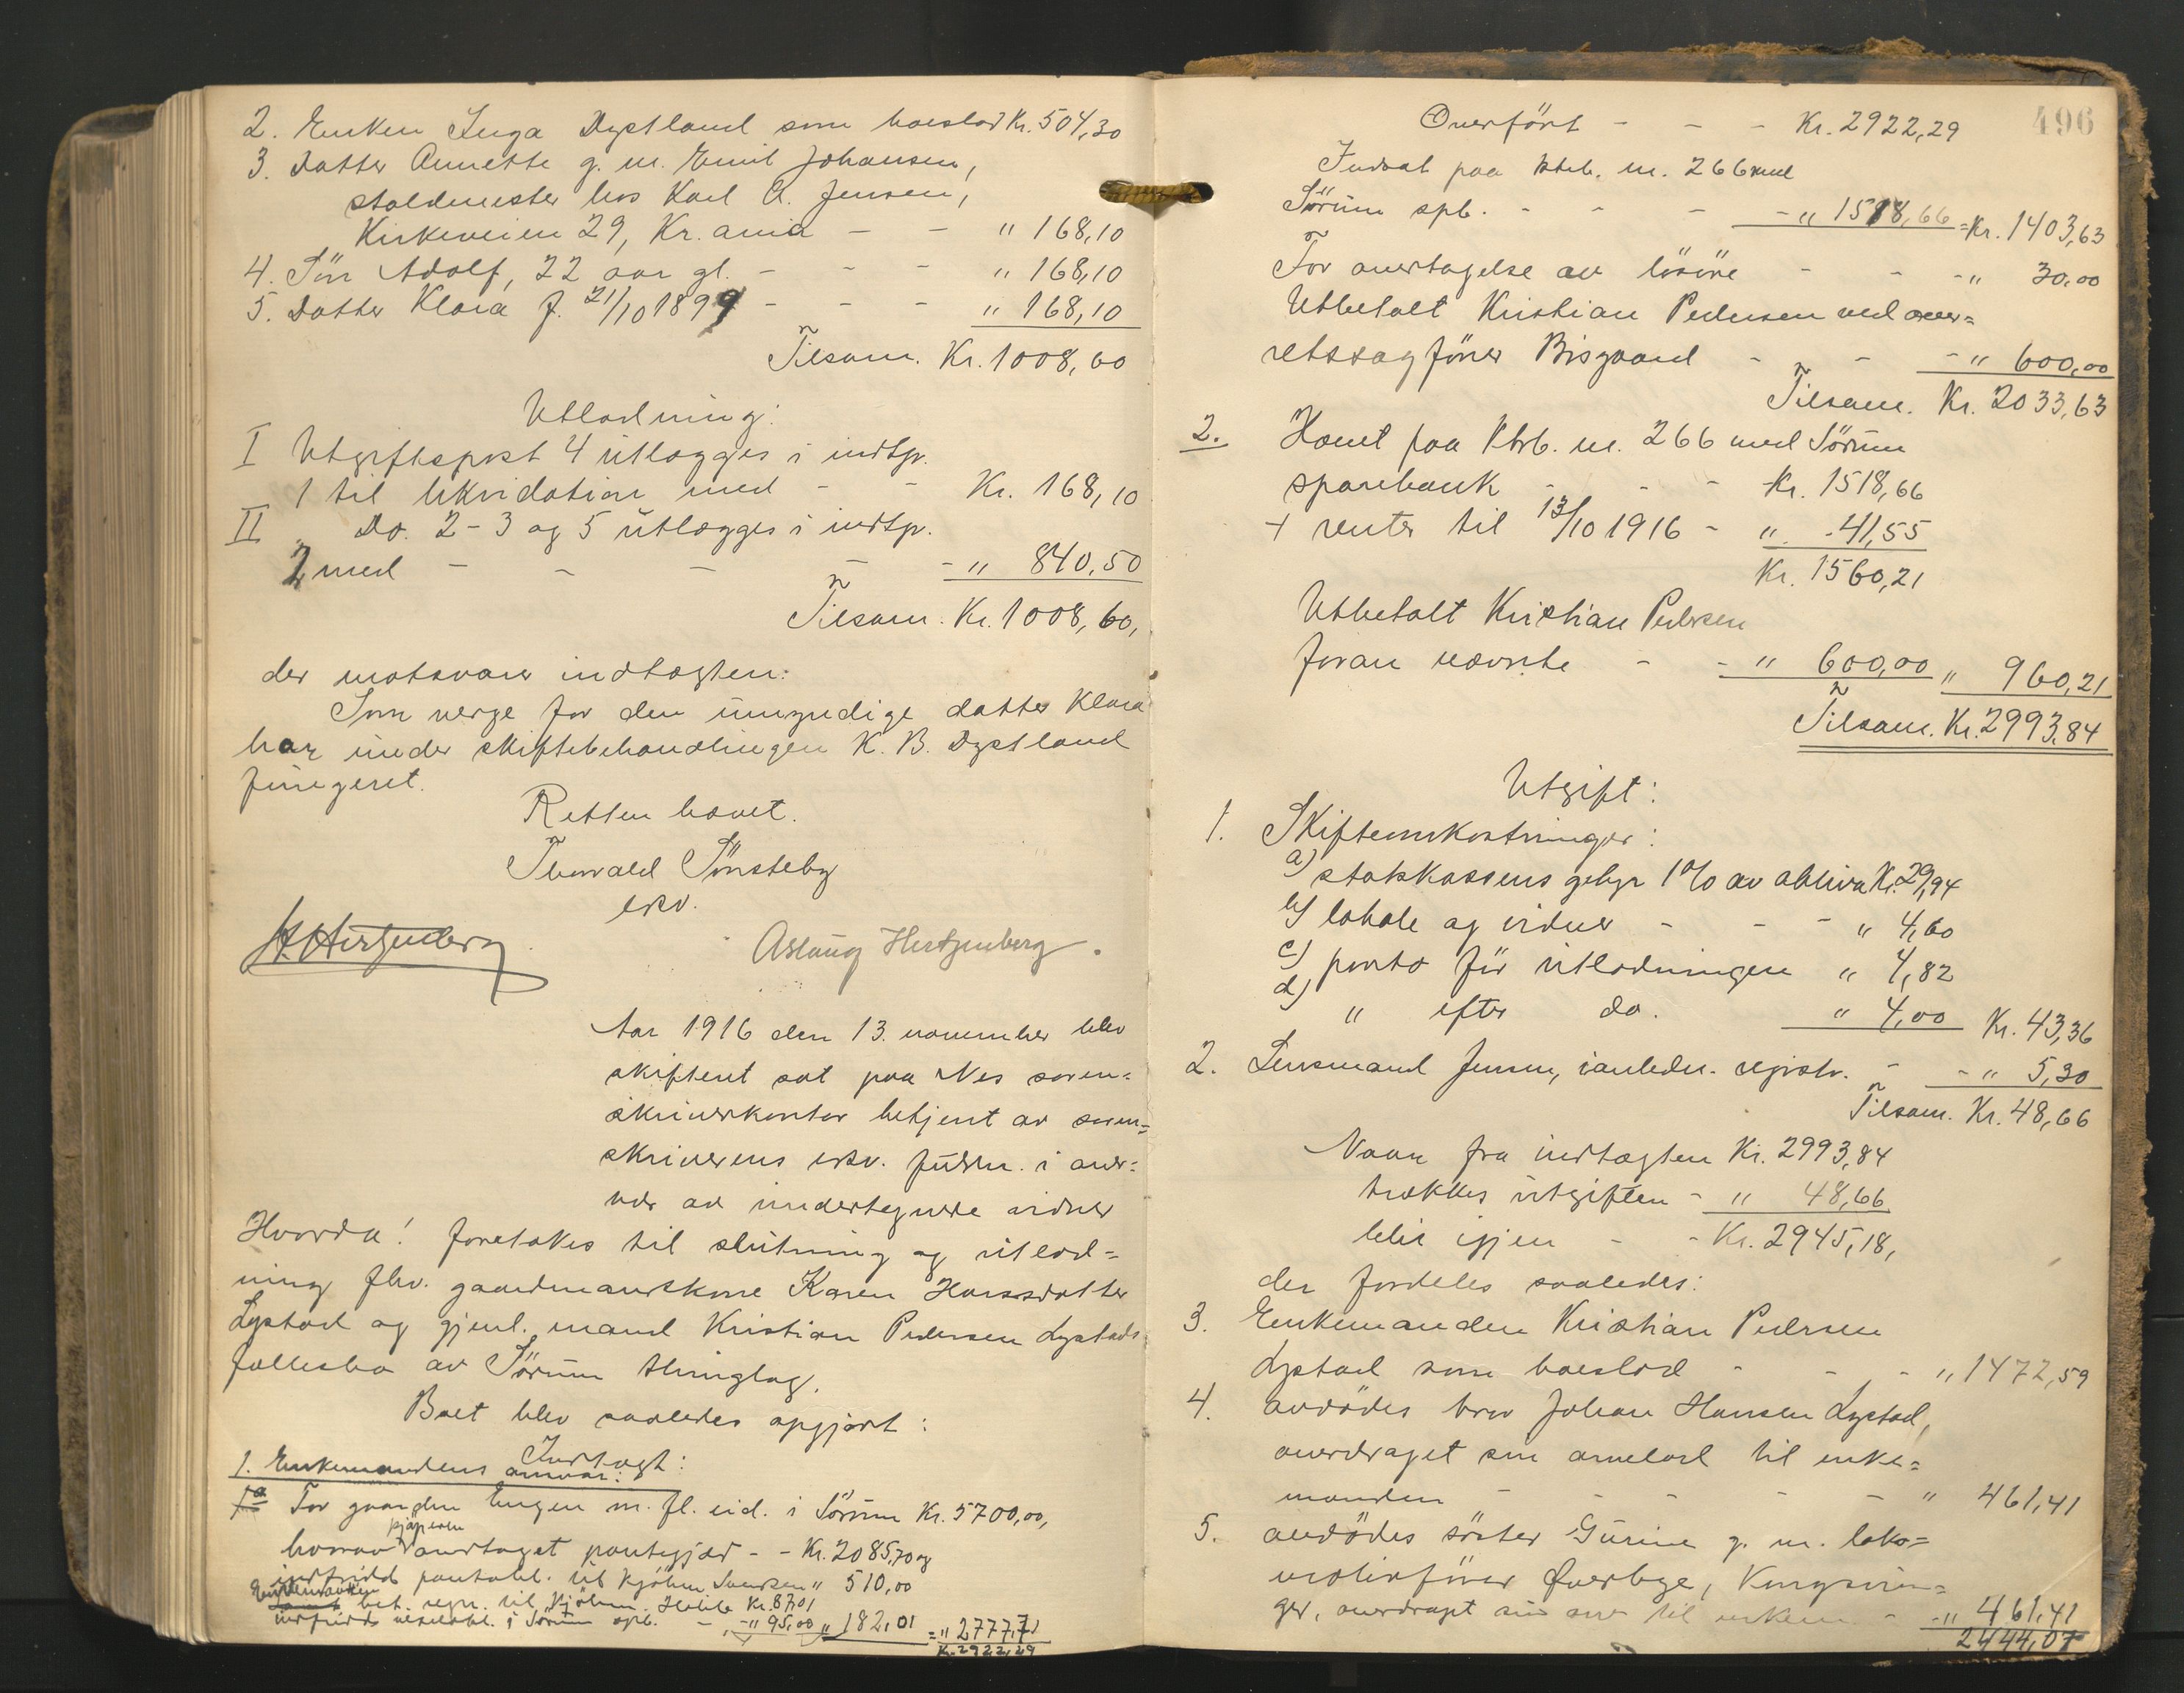 2. Enken Inga Dystland som boeslod Kr. 504,30
3. Datter Annette g. m. Emil Johansen,
staldmester hos Karl A. Jensen,
Kirkeveien 29, Kr.ania - - " 168,10
4. Sön Adolf, 22 aar gl. - - - " 168,10
5. Datter Klara f. 21/10 1899 - - - " 168,10
Tilsam. Kr. 1008,60
Utlodning:
I Utgiftspost 4 utlægges i indtp.
1 til likvidation med - - Kr. 168,10
II " Do. 2-3 og 5 utlægges i indtp.
2 med - - - - - " 840,50
Tilsam. Kr. 1008,60,
der motsvarer indtægten.
Som verge for den umyndige datter Klara
har under skiftebehandlingen K. B. Dystland
fungeret.
Retten hævet.
Thorvald Tönsteby
eksv.
H. Hertzenberg
Aslaug Hertzenberg.
Aar 1916 den 13. november blev
skifteret sat paa Nes soren=
skriverkontor betjent av soren=
skriverens eksv. fuldm. i over=
vær av undertegnede vidner
Hvorda! foretokes til slutning og utlod=
ning fhv. gaardmandskone Karen Hansdatter
Lystad og gjenl. mand Kristian Pedersen Lystads
fællesbo av Sörum thinglag.
Boet blev saaledes opgjort:
Indtægt:
1. Enkemandens ansvar:
1a For gaarden Engen m. fl. eid. i Sörum Kr. 5700,00,
kjöperen
horav overtaget pantegjæld - - Kr. 2085,70 og
indfridd pantobl. til Kjöbm. Svendsen " 510,00
Enkemanden bet. regn. til Kjöbm. Kr. 87,01
indfridd vekselobl. i Sörum spb. - " 95,00 " 182,01 = " 2777,71
Kr. 2922,29
496
Overfört - - - Kr. 2922,29
Indsat paa ktrb. nr. 266 med
Sörum spb. - - - - " 1518,66 = Kr. 1403,63
For overtagelse av lösöre - - - " 30,00
Utbetalt Kristian Pedersen ved over=
retssagförer Bisgaard - - - " 600,00
Tilsam. Kr. 2033,63
2. Hævet paa ktrb. nr. 266 med Sörum
sparebank - - - Kr. 1518,66
+ renter til 13/10 1916 - " 41,55
Kr. 1560,21
Utbetalt Kristian Pedersen
foran nævnte - - " 600,00 " 960,21
Tilsam. Kr. 2993,84
Utgift:
1. Skifteomkostninger:
a) statskassens gebyr 1% av aktiva Kr. 29,94
b) lokale og vidner - - - " 4,60
c) porto för utlodningen " 4,82
d) " efter do. " 4,00 Kr. 43,36
2. Lensmand Jensen, i anledn. registr. - - " 5,30
Tilsam. Kr. 48,66
Naar fra indtægten Kr. 2993,84
trækkes utgiften - " 48,66
blir igjen - - Kr. 2945,18,
der fordeles saaledes:
3. Enkemanden Kristian Pedersen
Lystad som boeslod - - - " 1472,59
4. avdödes bror Johan Hansen Lystad,
overdraget sin arvelod til enke=
manden - - - - - " 461,41
5. avdödes söster Gurine g. m. loko=
motivförer Överbye, Kongsvin=
ger, overdraget sin arv til enkem. - - " 461,41
2444,07